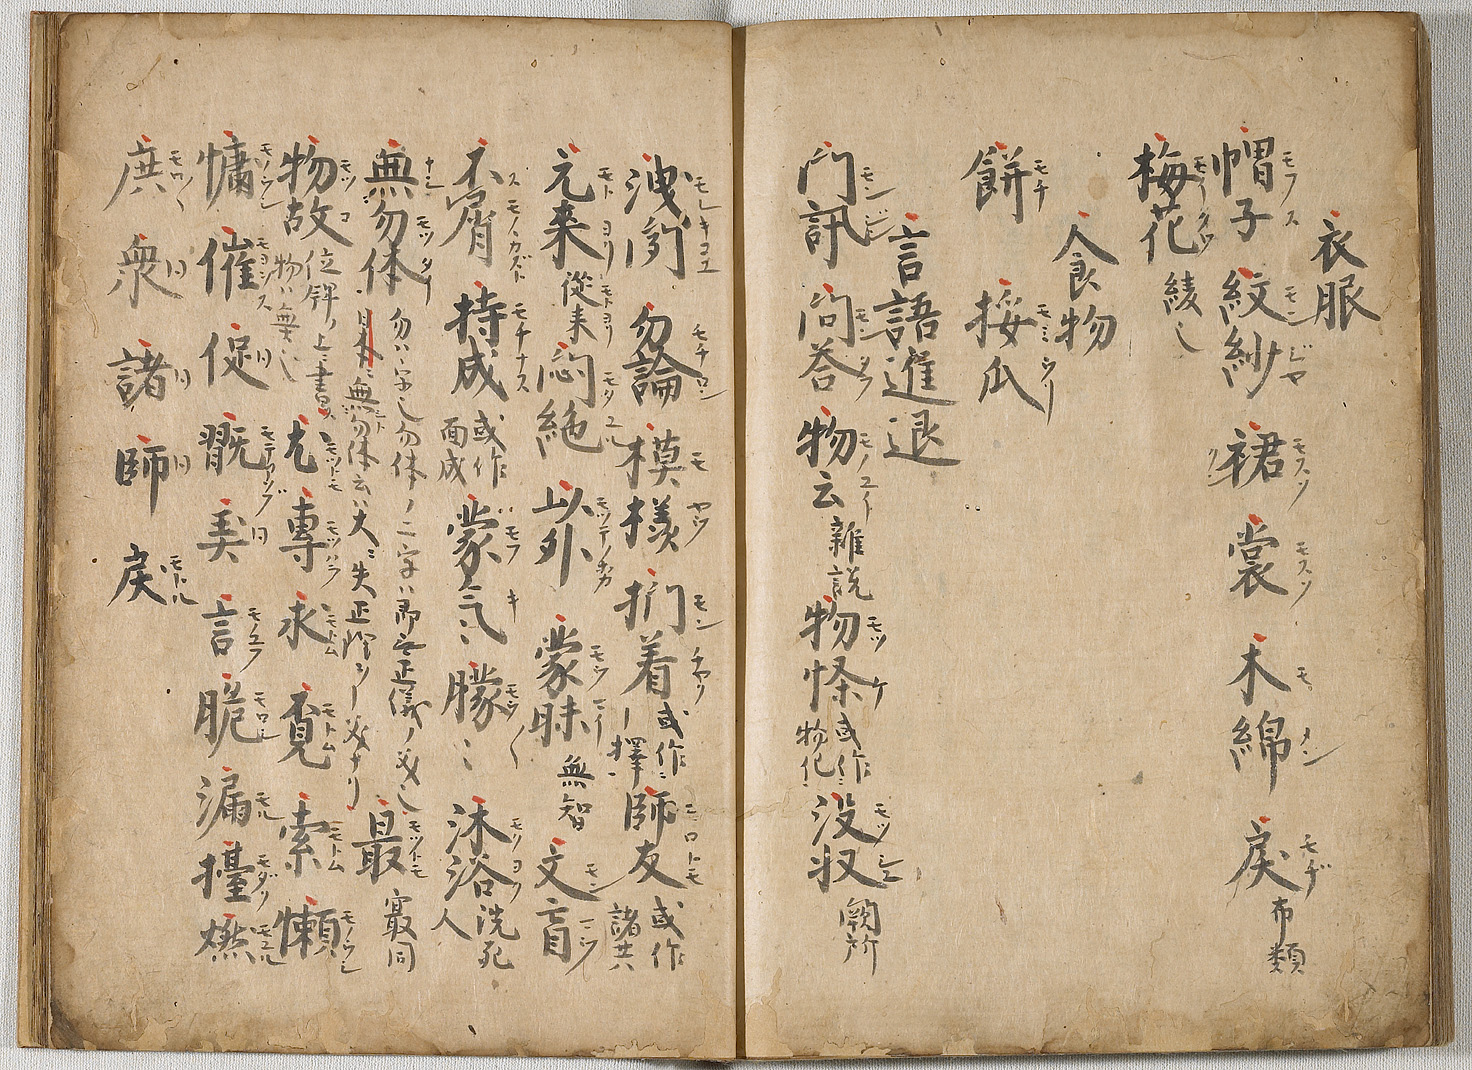 衣服
帽子モウス 紋紗モンジヤ 裙モスソ 裳モスソ 木綿モメン 戾モヂ 布類
梅花 綾也
食物
餅モチ 挼瓜モミウリ
言語進退
門訊モンジン 問答モンタフ 物云モノユイ 雜説 物怪モツケ 或作物化 没収モツシユ 闕所
洩聞モレキコエ 勿論モチロン 模様モヤウ 捫着モンチヤク 或作 擇 師友モロトモ 或作諸共
元来モトヨリ 從来モトヨリ 悶絶モタユル 以外モツテノホカ 蒙昧モウマイ 無智 文盲モンマウ
不屑モノヽカズト 持成モチナス 或作面成 蒙気モウキ 朦々モウ〱 沐浴モクヨク 洗死人
無勿体モツタイ 勿ハ字也勿体ノ二字ハ即云正儀ノ
日本ニ無勿体云ハ大ニ失正 最モツトモ 冣同
物故モツコ 位牌ノ上ニ書 物ハ無也 尤モツトモ 專モツハラ 求モトム 覓モトム 索モトム 懶モノウシ
慵モノウシ 催モヨヲス 促同 翫モテアソブ 美同 言モノユフ 脆モロシ 漏モル 擡モダク 燃モユル
庶モロ〱 衆同 諸同 師同 戾モトル